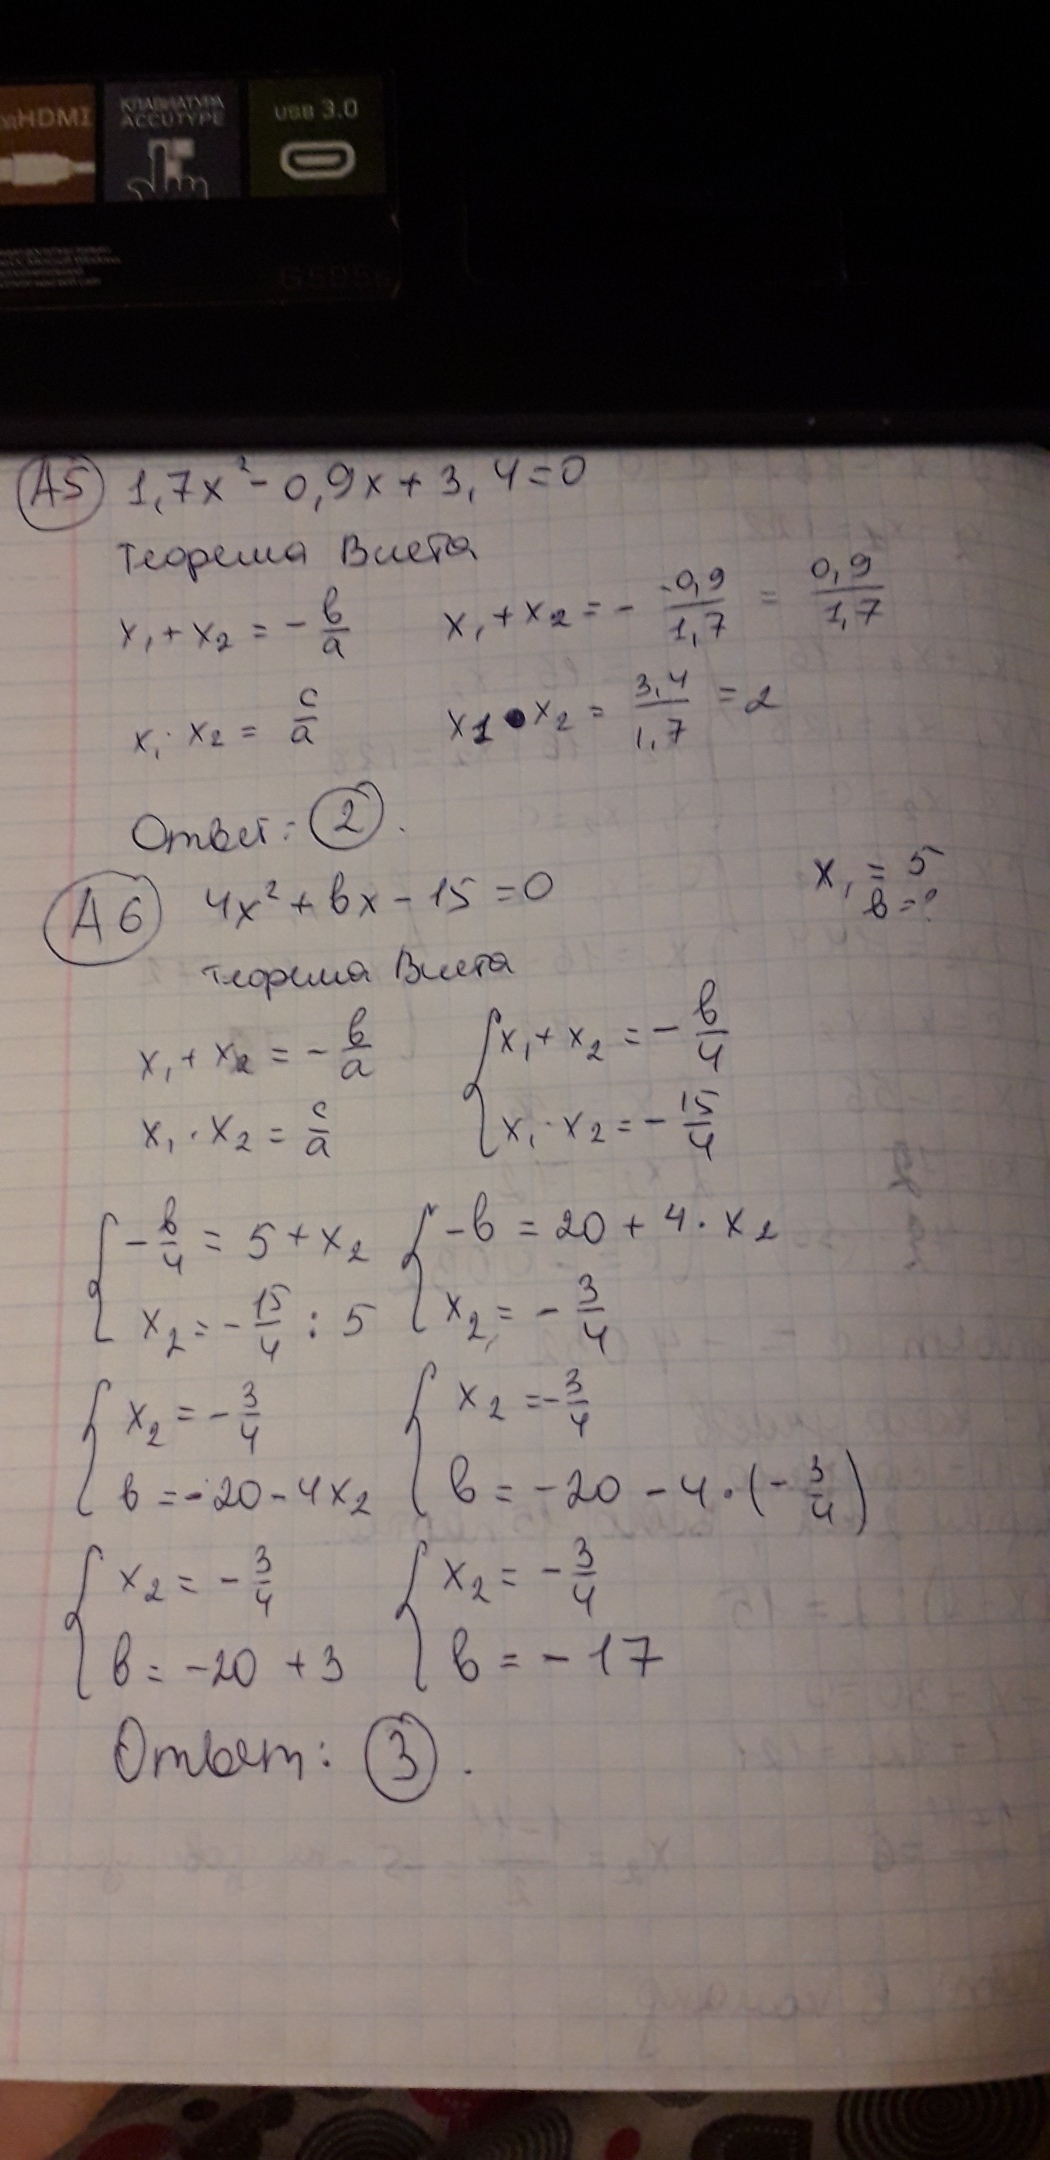 HDMI
КЛАВИАТУРА
ACCUTYPE
USB 3.0
A5 1,7x² - 0,9x + 3,4 = 0
Теорема Виета
x₁ + x₂ = - в/a x₁ + x₂ = - -0,9/1,7 = 0,9/1,7
x₁ · x₂ = c/a x1 • x₂ = 3,4/1,7 = 2
Ответ: 2.
A6 4x² + вx - 15 = 0 x₁ = 5
в = ?
теорема Виета
x₁ + x₂ = - в/a { x₁ + x₂ = - в/4
x₁ · x₂ = c/a x₁ · x₂ = - 15/4
{ - в/4 = 5 + x₂ { -в = 20 + 4 · x₂
x₂ = - 15/4 : 5 x₂ = - 3/4
{ x₂ = - 3/4 { x₂ = - 3/4
в = -20 - 4x₂ в = -20 - 4 · (- 3/4)
{ x₂ = - 3/4 { x₂ = - 3/4
в = -20 + 3 в = - 17
Ответ: 3.